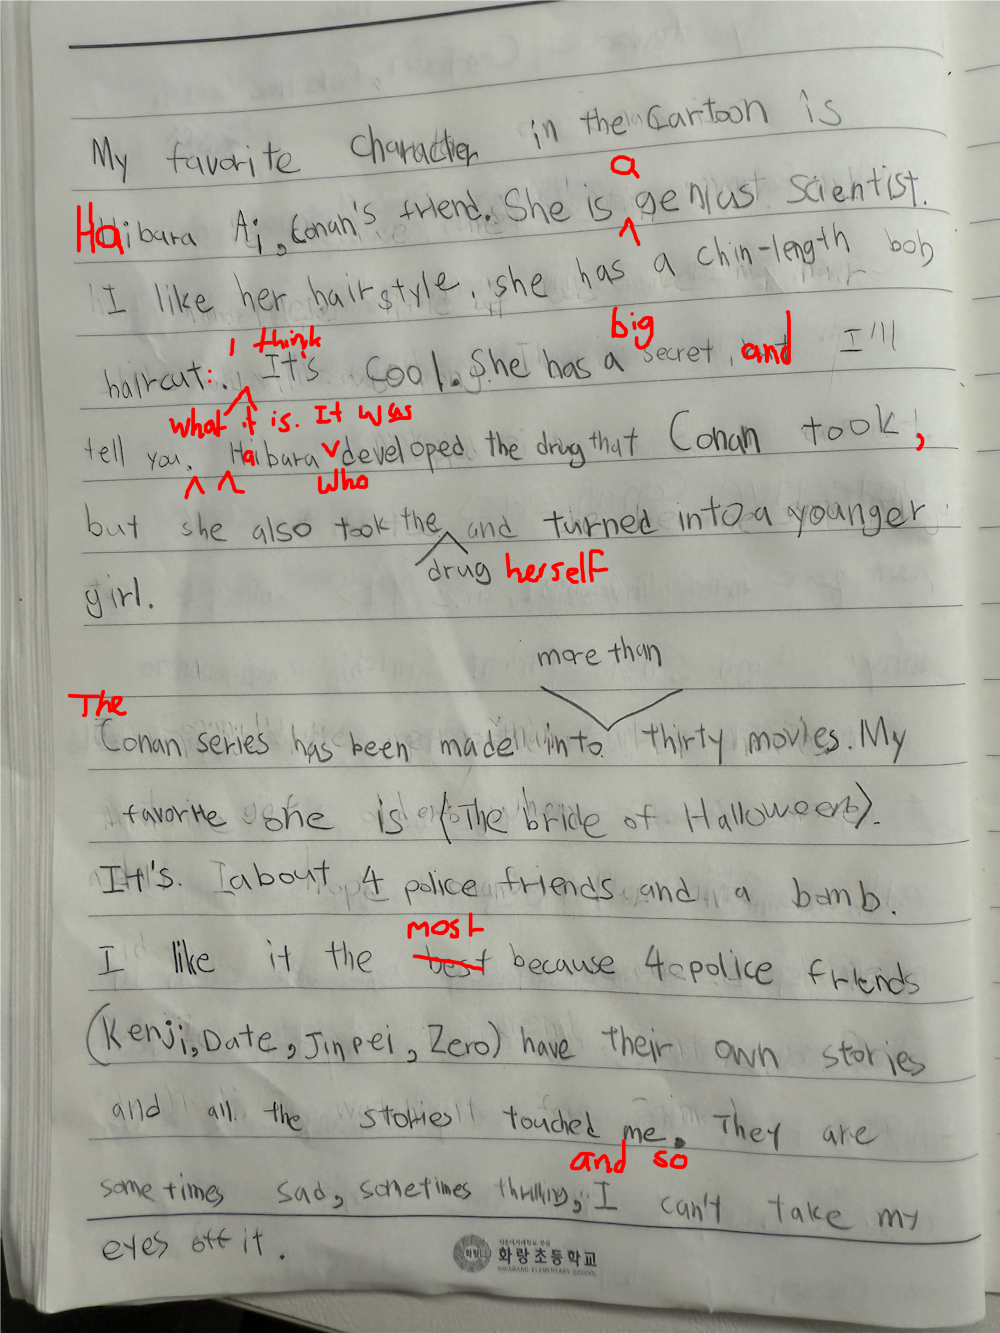 My favorite character in the cartoon is
a
Haibara Ai, Conan's friend. She is genius scientist.
I like her hairstyle, she has a chin-length bob
I think big
haircut:. It's cool. She has a secret, and I'll
what it is. It was
tell you. Haibara developed the drug that Conan took,
who
but she also took the and turned into a younger
drug herself
girl.
more than
The
Conan series has been made into thirty movies. My
favorite one is (The bride of Halloween).
It's about 4 police friends and a bomb.
most
I like it the best because 4 police friends
(Kenji, Date, Jinpei, Zero) have their own stories
and all the stories touched me. They are
and so
sometimes sad, sometimes thrilling, I can't take my
eyes off it.
화랑초등학교
HWARANG ELEMENTARY SCHOOL